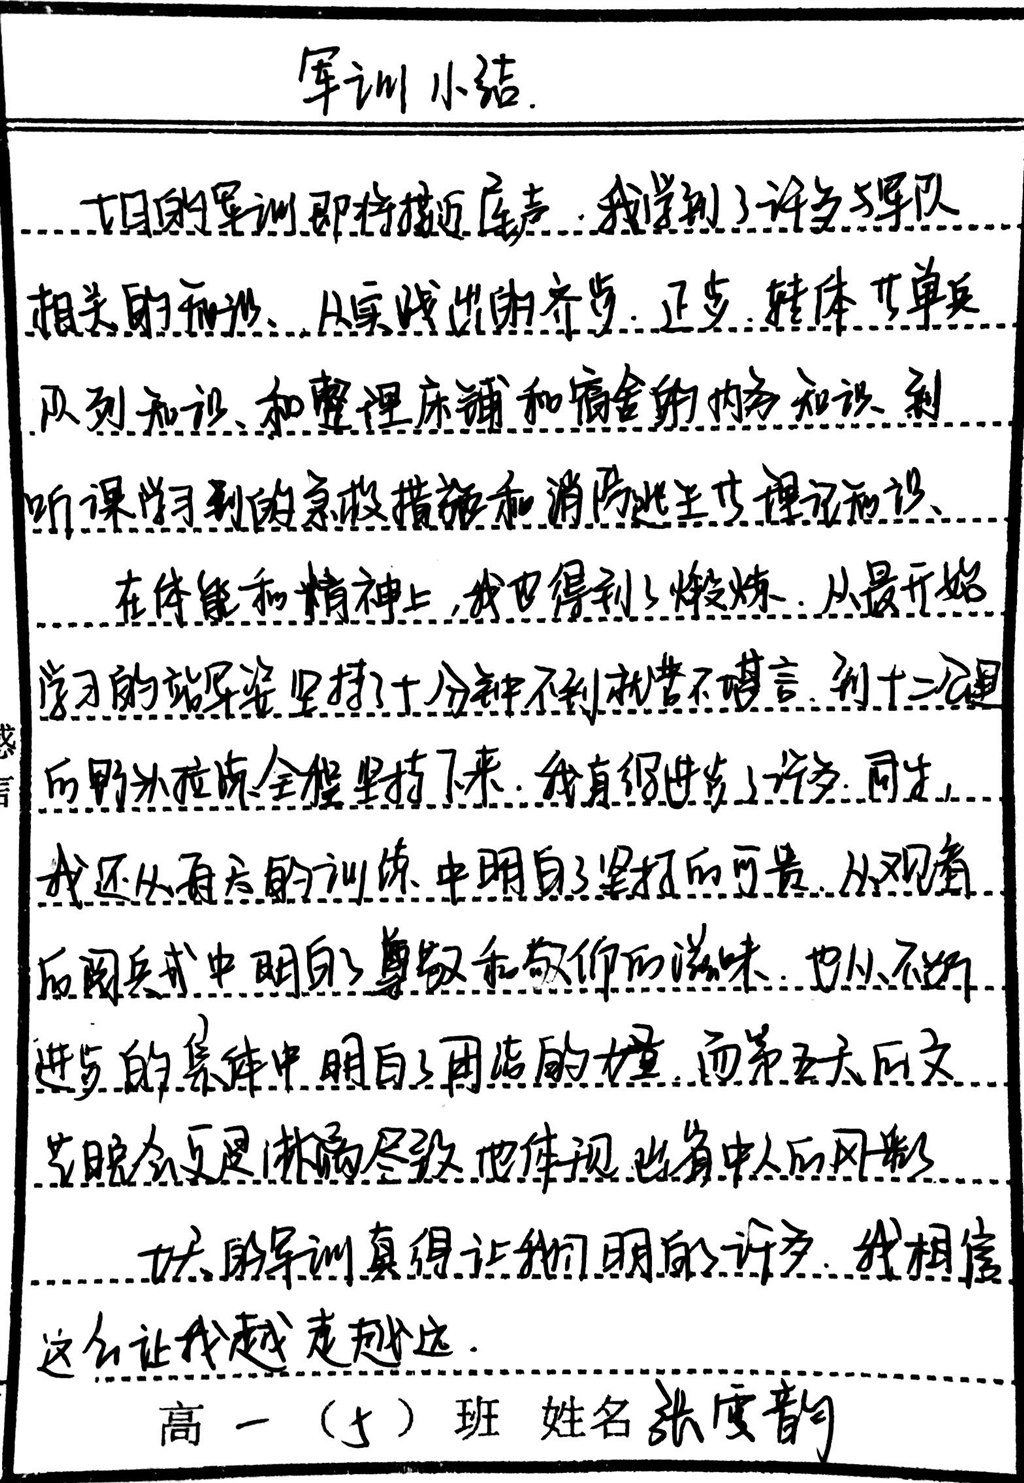 军训小结.
七日的军训即将接近尾声.我学到了许多与军队
相关的知识、从实践出的齐步.正步.转体等单兵
队列知识、和整理床铺和宿舍的内务知识、到
听课学习到的急救措施和消防逃生等理论知识、
在体能和精神上,我也得到了煅炼.从最开始
学习的站军姿坚持了十分钟不到就苦不堪言.到十二公里
的野外拉练全程坚持下来.我真得进步了许多.同时,
我还从每天的训练中明白了坚持的可贵.从观看
的阅兵式中明白了尊敬和敬仰的滋味.也从不断
进步的集体中明白了团结的力量.而第五天的文
艺晚会更是淋漓尽致地体现出省中人的风彩
七天的军训真得让我们明白了许多.我相信
这会让我越走越远.
感
言
高一(5)班 姓名张雯韵